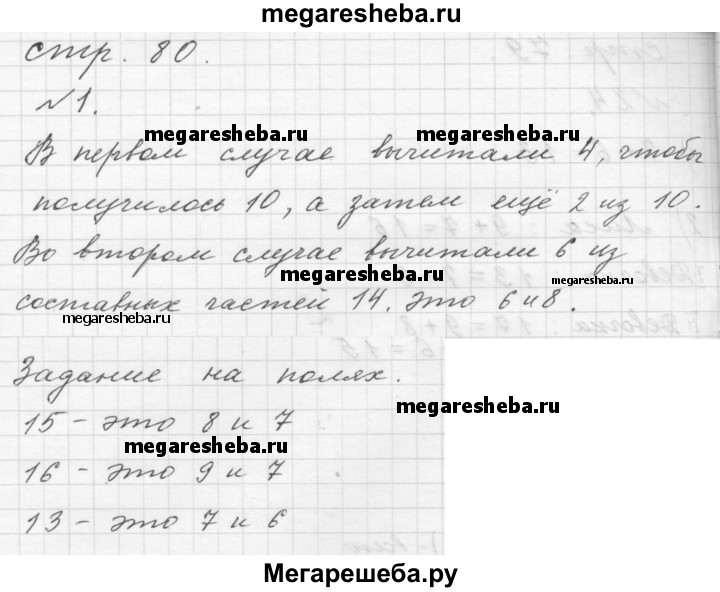 megaresheba.ru
стр. 80.
№1.
megaresheba.ru megaresheba.ru
В первом случае вычитали 4, чтобы
получилось 10, а затем ещё 2 из 10.
Во втором случае вычитали 6 из
megaresheba.ru megaresheba.ru
составных частей 14. Это 6 и 8.
megaresheba.ru
Задание на полях.
megaresheba.ru
15 - это 8 и 7
megaresheba.ru
16 - это 9 и 7
13 - это 7 и 6
Мегарешеба.ру